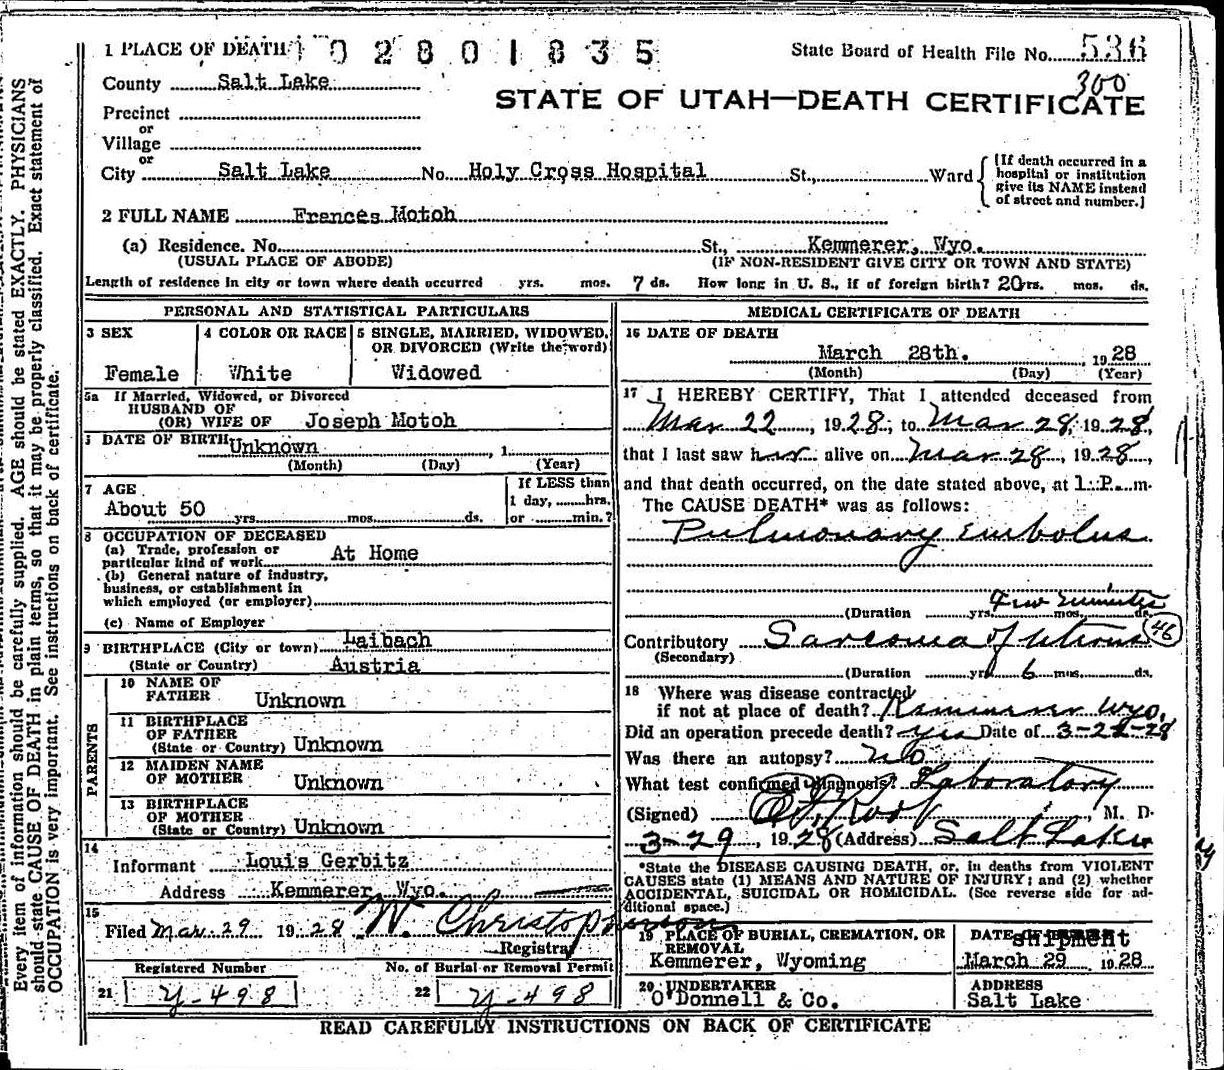 1 PLACE OF DEATH 02801835
State Board of Health File No. 536
300
County Salt Lake
STATE OF UTAH—DEATH CERTIFICATE
Precinct
or
Village
or
City Salt Lake No. Holy Cross Hospital St., Ward
[If death occurred in a
hospital or institution
give its NAME instead
of street and number.]
2 FULL NAME Frances Motoh
(a) Residence. No. St., Kemmerer, Wyo.
(USUAL PLACE OF ABODE) (IF NON-RESIDENT GIVE CITY OR TOWN AND STATE)
Length of residence in city or town where death occurred yrs. mos. 7 ds. How long in U. S., if of foreign birth? 20 yrs. mos. ds.
PERSONAL AND STATISTICAL PARTICULARS
3 SEX
Female
4 COLOR OR RACE
White
5 SINGLE, MARRIED, WIDOWED,
OR DIVORCED (Write the word)
Widowed
5a If Married, Widowed, or Divorced
HUSBAND OF
(OR) WIFE OF Joseph Motoh
DATE OF BIRTH Unknown, 1
(Month) (Day) (Year)
7 AGE
About 50 yrs. mos. ds.
If LESS than
1 day, hrs.
or min.?
8 OCCUPATION OF DECEASED
(a) Trade, profession or
particular kind of work At Home
(b) General nature of industry,
business, or establishment in
which employed (or employer)
(c) Name of Employer
9 BIRTHPLACE (City or town) Laibach
(State or Country) Austria
PARENTS
10 NAME OF
FATHER Unknown
11 BIRTHPLACE
OF FATHER
(State or Country) Unknown
12 MAIDEN NAME
OF MOTHER Unknown
13 BIRTHPLACE
OF MOTHER
(State or Country) Unknown
14
Informant Louis Gerbitz
Address Kemmerer, Wyo.
15
Filed Mar. 29 1928 W. Christopherson
Registrar
Registered Number
21 Y-498
No. of Burial or Removal Permit
22 Y-498
MEDICAL CERTIFICATE OF DEATH
16 DATE OF DEATH
March 28th. 1928
(Month) (Day) (Year)
17 I HEREBY CERTIFY, That I attended deceased from
Mar 22, 1928, to Mar 28, 1928,
that I last saw her alive on Mar 28, 1928,
and that death occurred, on the date stated above, at 1 P. m.
The CAUSE DEATH* was as follows:
Pulmonary Embolus
(Duration yrs. mos. ds. Few minutes
Contributory Sarcoma of Uterus 46
(Secondary)
(Duration yrs. 6 mos. ds.
18 Where was disease contracted
if not at place of death? Kemmerer Wyo.
Did an operation precede death? yes Date of 3-22-28
Was there an autopsy? no
What test confirmed diagnosis? Laboratory
(Signed) M. D.
3-29, 1928 (Address) Salt Lake
*State the DISEASE CAUSING DEATH, or, in deaths from VIOLENT
CAUSES state (1) MEANS AND NATURE OF INJURY; and (2) whether
ACCIDENTAL, SUICIDAL OR HOMICIDAL. (See reverse side for ad-
ditional space.)
19 PLACE OF BURIAL, CREMATION, OR
REMOVAL
Kemmerer, Wyoming
DATE OF shipment
March 29 1928
20 UNDERTAKER
O'Donnell & Co.
ADDRESS
Salt Lake
READ CAREFULLY INSTRUCTIONS ON BACK OF CERTIFICATE
Every item of information should be carefully supplied. AGE should be stated EXACTLY. PHYSICIANS
should state CAUSE OF DEATH in plain terms, so that it may be properly classified. Exact statement of
OCCUPATION is very important. See instructions on back of certificate.